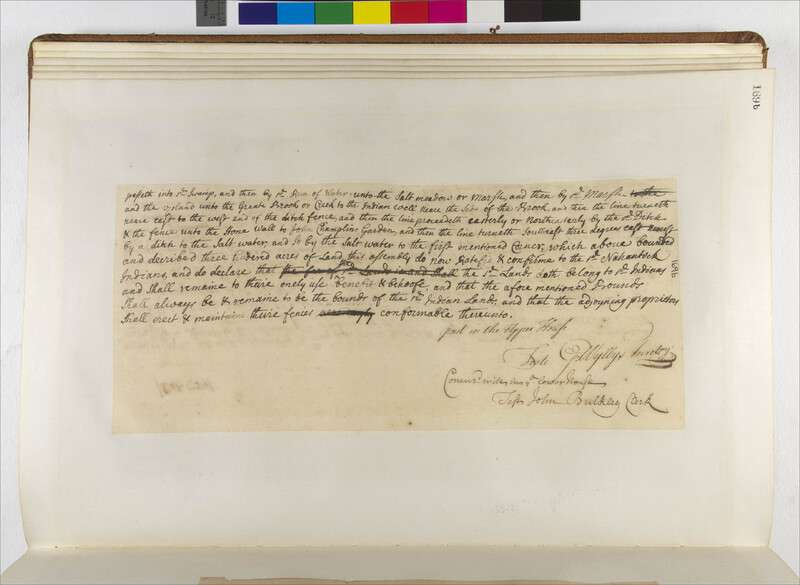 169b
passeth into sd. Swamp, and then by sd. Run of Water unto the Salt meadow or Marsh, and then by sd. Marsh to the
and the upland unto the Great Brook or Creek to the Indian well neare the side of the Brook, and then the line turneth
neare east to the west end of the ditch fence, and then the line proceedeth easterly or Northeasterly by the sd. Ditch
& the fence unto the stone wall to John Champlins Garden, and then the line turneth Southeast three degrees east
by a ditch to the Salt water, and so by the Salt water to the first mentioned Corner, which above bounded
and decribed three hundered acres of Land, this assembly do now Ratefie & confirme to the sd. Nahantick
Indians, and do declare that the sd. Lands doth belong to sd. Indians
and Shall remaine to theire onely use benefit & behoofe, and that the afore mentioned Bounds
Shall always be & remaine to be the bounds of the sd. Indian Lands, and that the adjoyning proprietors
Shall erect & maintaine theire fences conformable thereunto.
169b
past in the Upper House
Teste G Wyllys Secretty
Concurd. with in ye lower House
Test John Bulkley Clerk